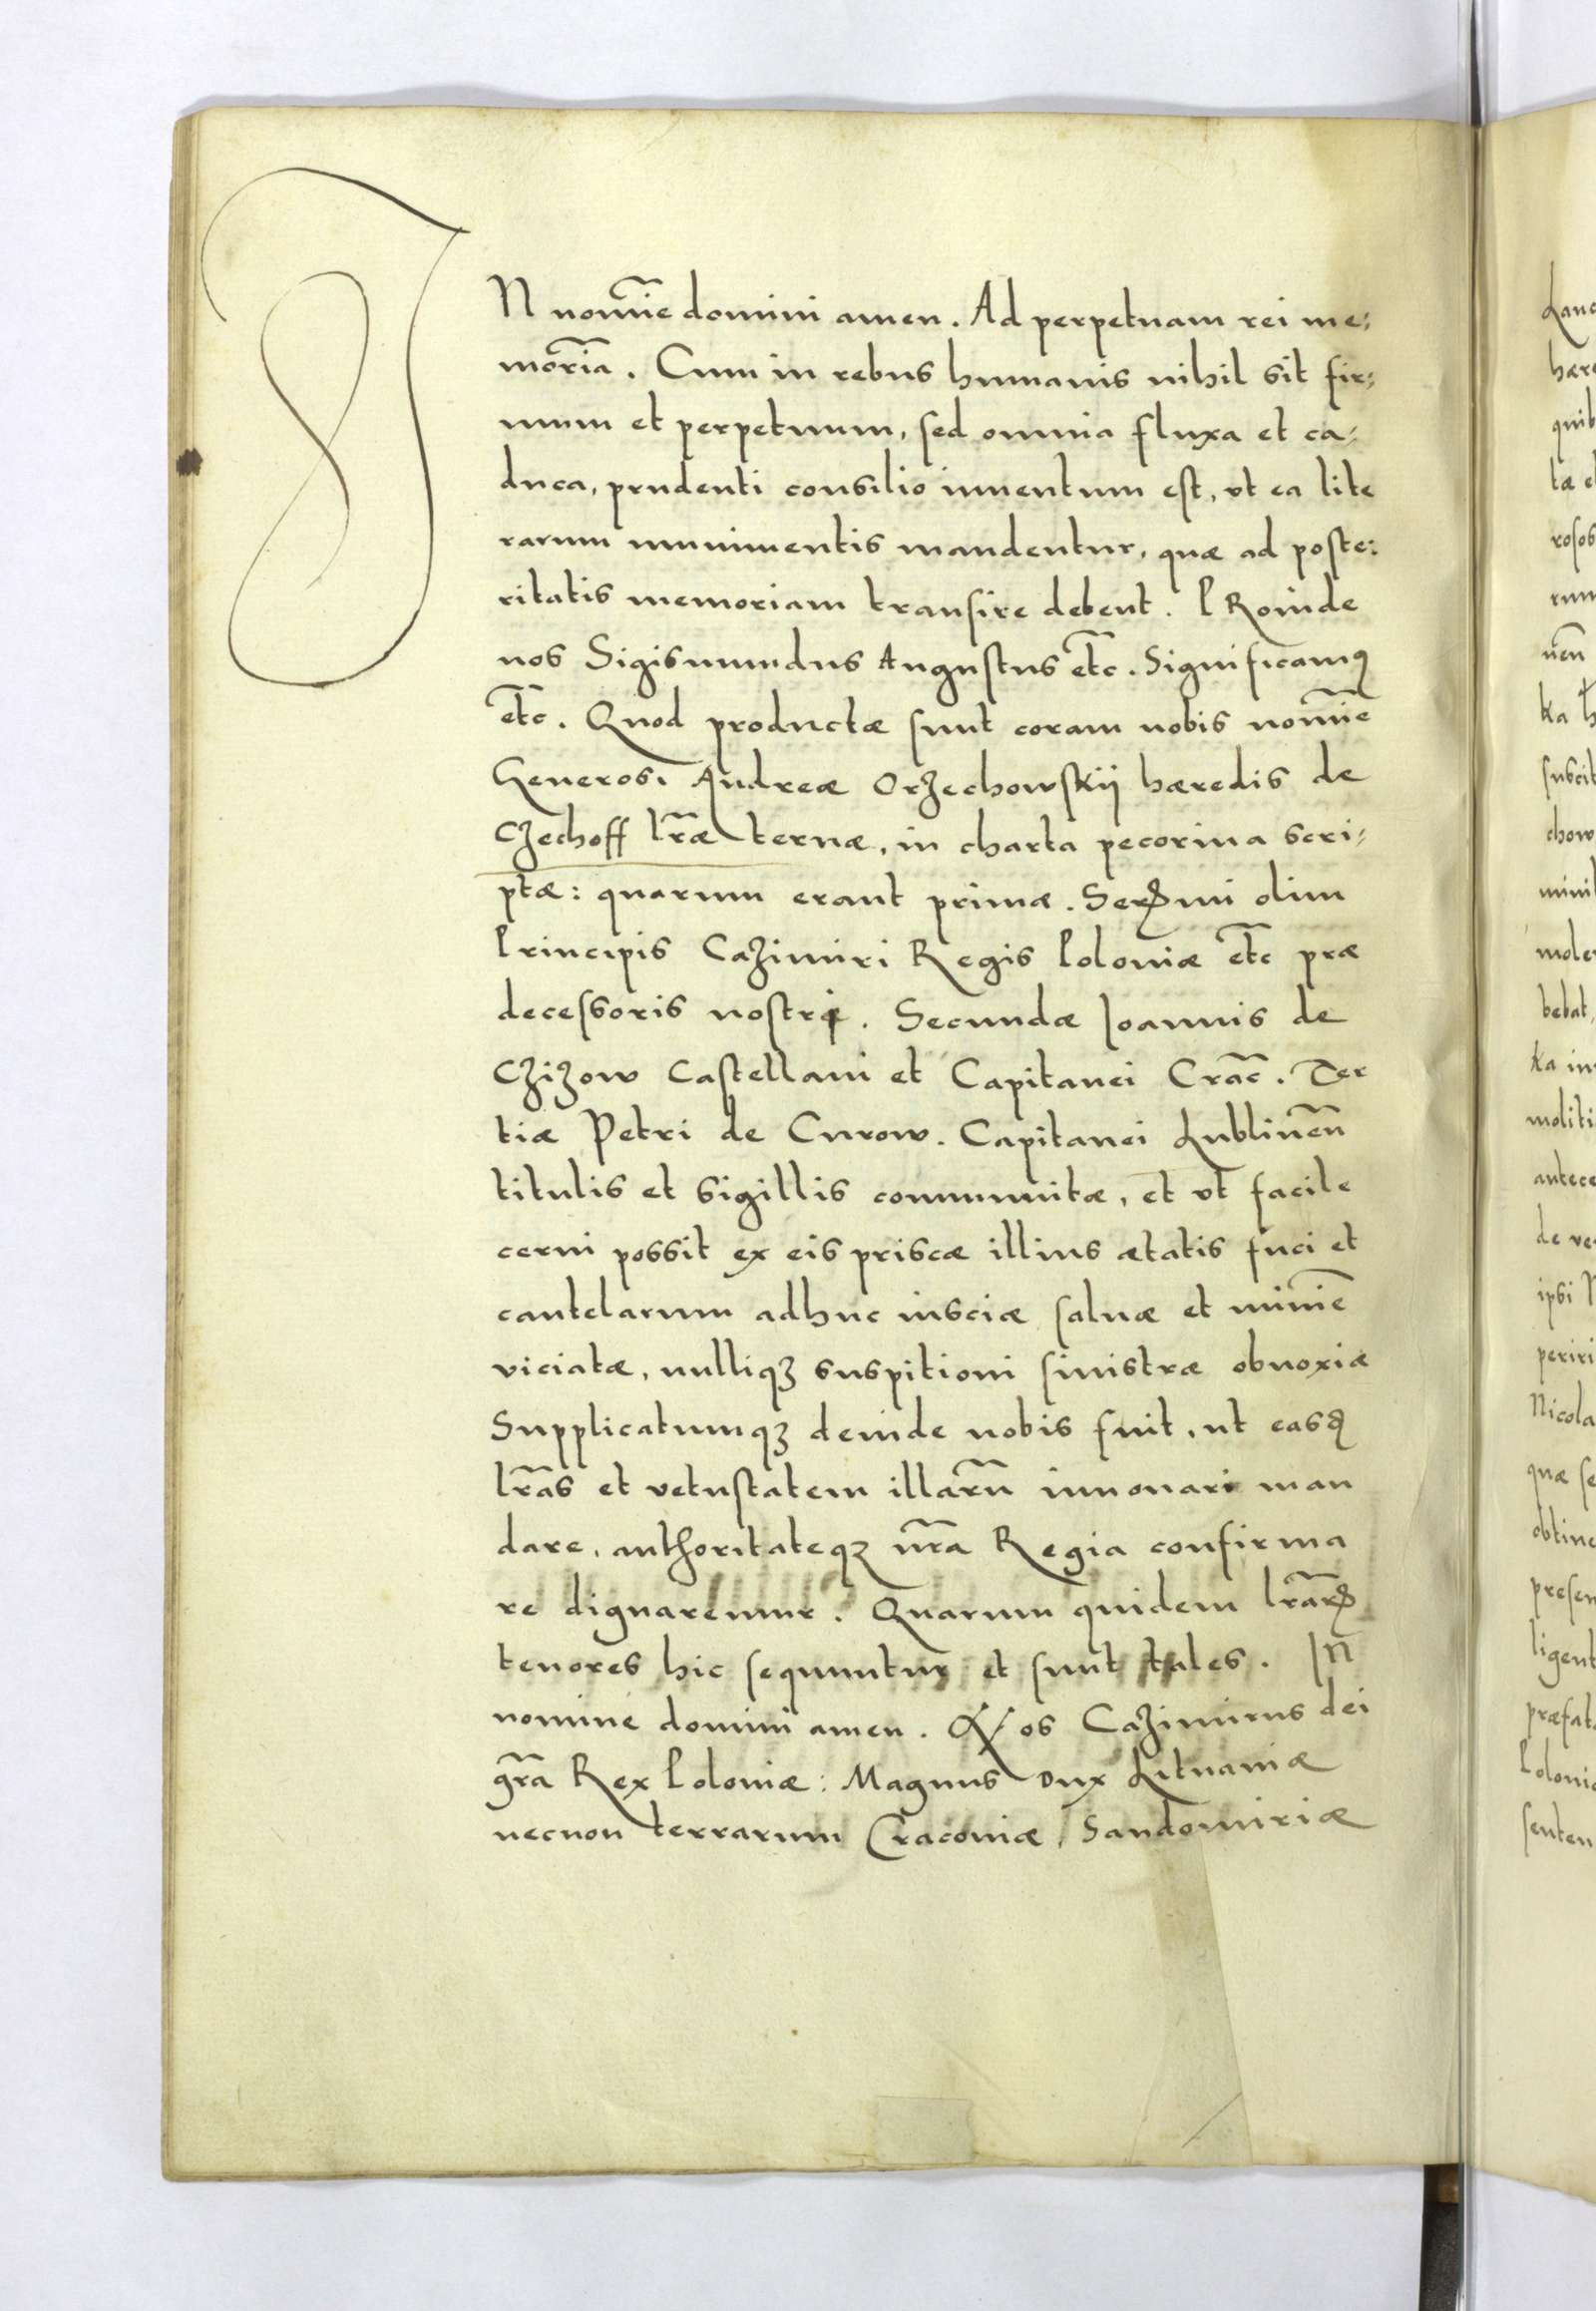 IN nomie domini amen. Ad perpetuam rei me:
moria. Cum in rebus humanis nihil sit fir:
mum et perpetuum, sed omnia fluxa et ca:
duca, prudenti consilio inuentum est, vt ea lite
rarum munimentis mandentur, quæ ad poste:
ritatis memoriam transire debent. PRoinde
nos Sigismundus Augustus etc. Significamꝰ
etc. Quod productæ sunt coram nobis nomie
Generosi Andreæ Orzechowskij hæredis de
Czechoff lr̃æ ternæ, in charta pecorina scri:
ptæ: quarum erant primæ. Serꝰmi olim
Principis Cazimiri Regis Poloniæ etc præ
decessoris nostri. Secundæ Ioannis de
Czizow Castellani et Capitanei Crac̃. Ter
tiæ Petri de Curow. Capitanei Lublineñ
titulis et sigillis communitæ, et vt facile
cerni possit ex eis priscæ illius ætatis fuci et
cautelarum adhuc insciæ saluæ et minie
viciatæ, nulliqꝫ suspitioni sinistræ obnoxiæ
Supplicatumqꝫ deinde nobis fuit, ut easꝺ
lr̃as et vetustatem illarũ innouari man
dare, authoritateqꝫ nr̃a Regia confirma
re dignaremur. Quarum quidem lr̃arꝝ
tenores hic sequuntur et sunt tales. IN
nomine domini amen. Nos Cazimirus dei
gr̃a Rex Poloniæ: Magnus Dux Lituaniæ
necnon terrarum Cracouiæ, Sandomiriæ